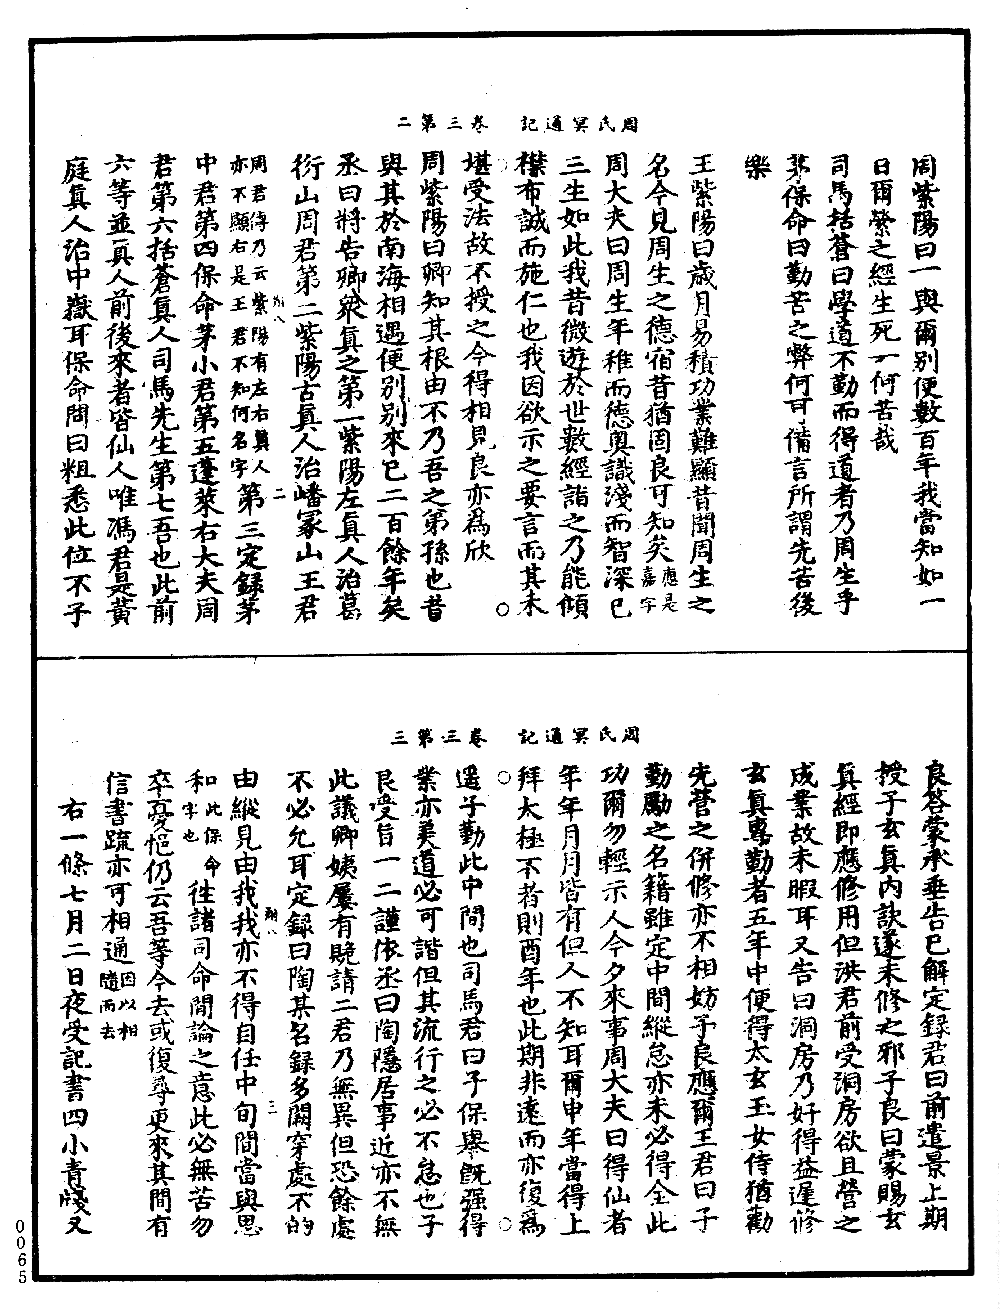 周氏冥通記　卷三第二
周紫陽曰一與爾別便數百年我當知如一
日爾縈之經生死一何苦哉
司馬括蒼曰學道不勤而得道者乃周生乎
茅保命曰勤苦之弊何可備言所謂先苦後
樂
王紫陽曰歲月易積功業難顯昔聞周生之
名今見周生之德宿昔猶固良可知矣應是嘉字
周大夫曰周生年稚而德奧識淺而智深已
三生如此我昔微遊於世數經詣之乃能傾
襟布誠而施仁也我因欲示之要言而其未
堪受法故不授之今得相見良亦爲欣
周紫陽曰卿知其根由不乃吾之第孫也昔
與其於南海相遇便別別來已二百餘年矣
丞曰將告卿衆眞之第一紫陽左眞人治葛
衍山周君第二紫陽古眞人治嶓冢山王君
周君傳乃云紫陽有左右眞人亦不顯右是王君不知何名字第三定錄茅
中君第四保命茅小君第五蓬萊右大夫周
君第六括蒼眞人司馬先生第七吾也此前
六等並眞人前後來者皆仙人唯馮君是黃
庭眞人治中嶽耳保命問曰粗悉此位不子
周氏冥通記　卷三第三
良荅蒙承垂告已解定錄君曰前遣景上期
授子玄眞內訣遂未修之邪子良曰蒙賜玄
眞經即應修用但洪君前受洞房欲且營之
成業故未暇耳又告曰洞房乃好得益遲修
玄眞專勤者五年中便得太玄玉女侍猶勸
先營之併修亦不相妨子良應爾王君曰子
勤勵之名籍雖定中間縱怠亦未必得全此
功爾勿輕示人今夕來事周大夫曰得仙者
年年月月皆有但人不知耳爾申年當得上
拜太極不者則酉年也此期非遠而亦復爲
遥子勤此中間也司馬君曰子保舉旣强得
業亦美道必可諧但其流行之必不怠也子
良受旨一二謹依丞曰陶隱居事近亦不無
此議卿姨屢有晚請二君乃無異但恐餘處
不必允耳定錄曰陶某名錄多闕穿處不的
由縱見由我我亦不得自任中旬間當與思
和此保命字也徃諸司命間論之意此必無苦勿
卒憂悒仍云吾等今去或復尋更來其間有
信書䟽亦可相通因以相隨而去
右一條七月二日夜受記書四小青牋又
0065